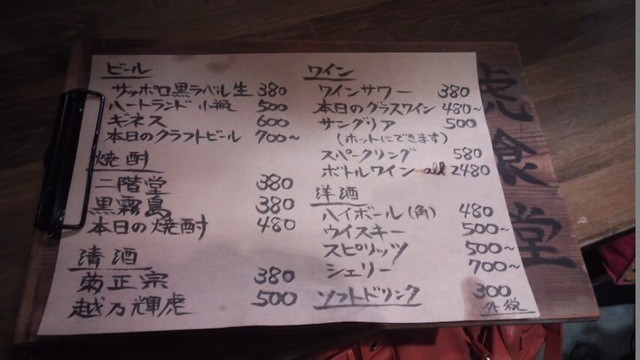 ビール
サッポロ黒ラベル生 380
ハートランド小瓶 500
ギネス 600
本日のクラフトビール 700~
焼酎
二階堂 380
黒霧島 380
本日の焼酎 480
清酒
菊正宗 380
越乃輝虎 500
ワイン
ワインサワー 380
本日のグラスワイン 480~
サングリア 500
(ホットにできます)
スパークリング 580
ボトルワイン all 2480
洋酒
ハイボール(角) 480
ウイスキー 500~
スピリッツ 500~
シェリー 700~
ソフトドリンク 300
外税
虎食堂